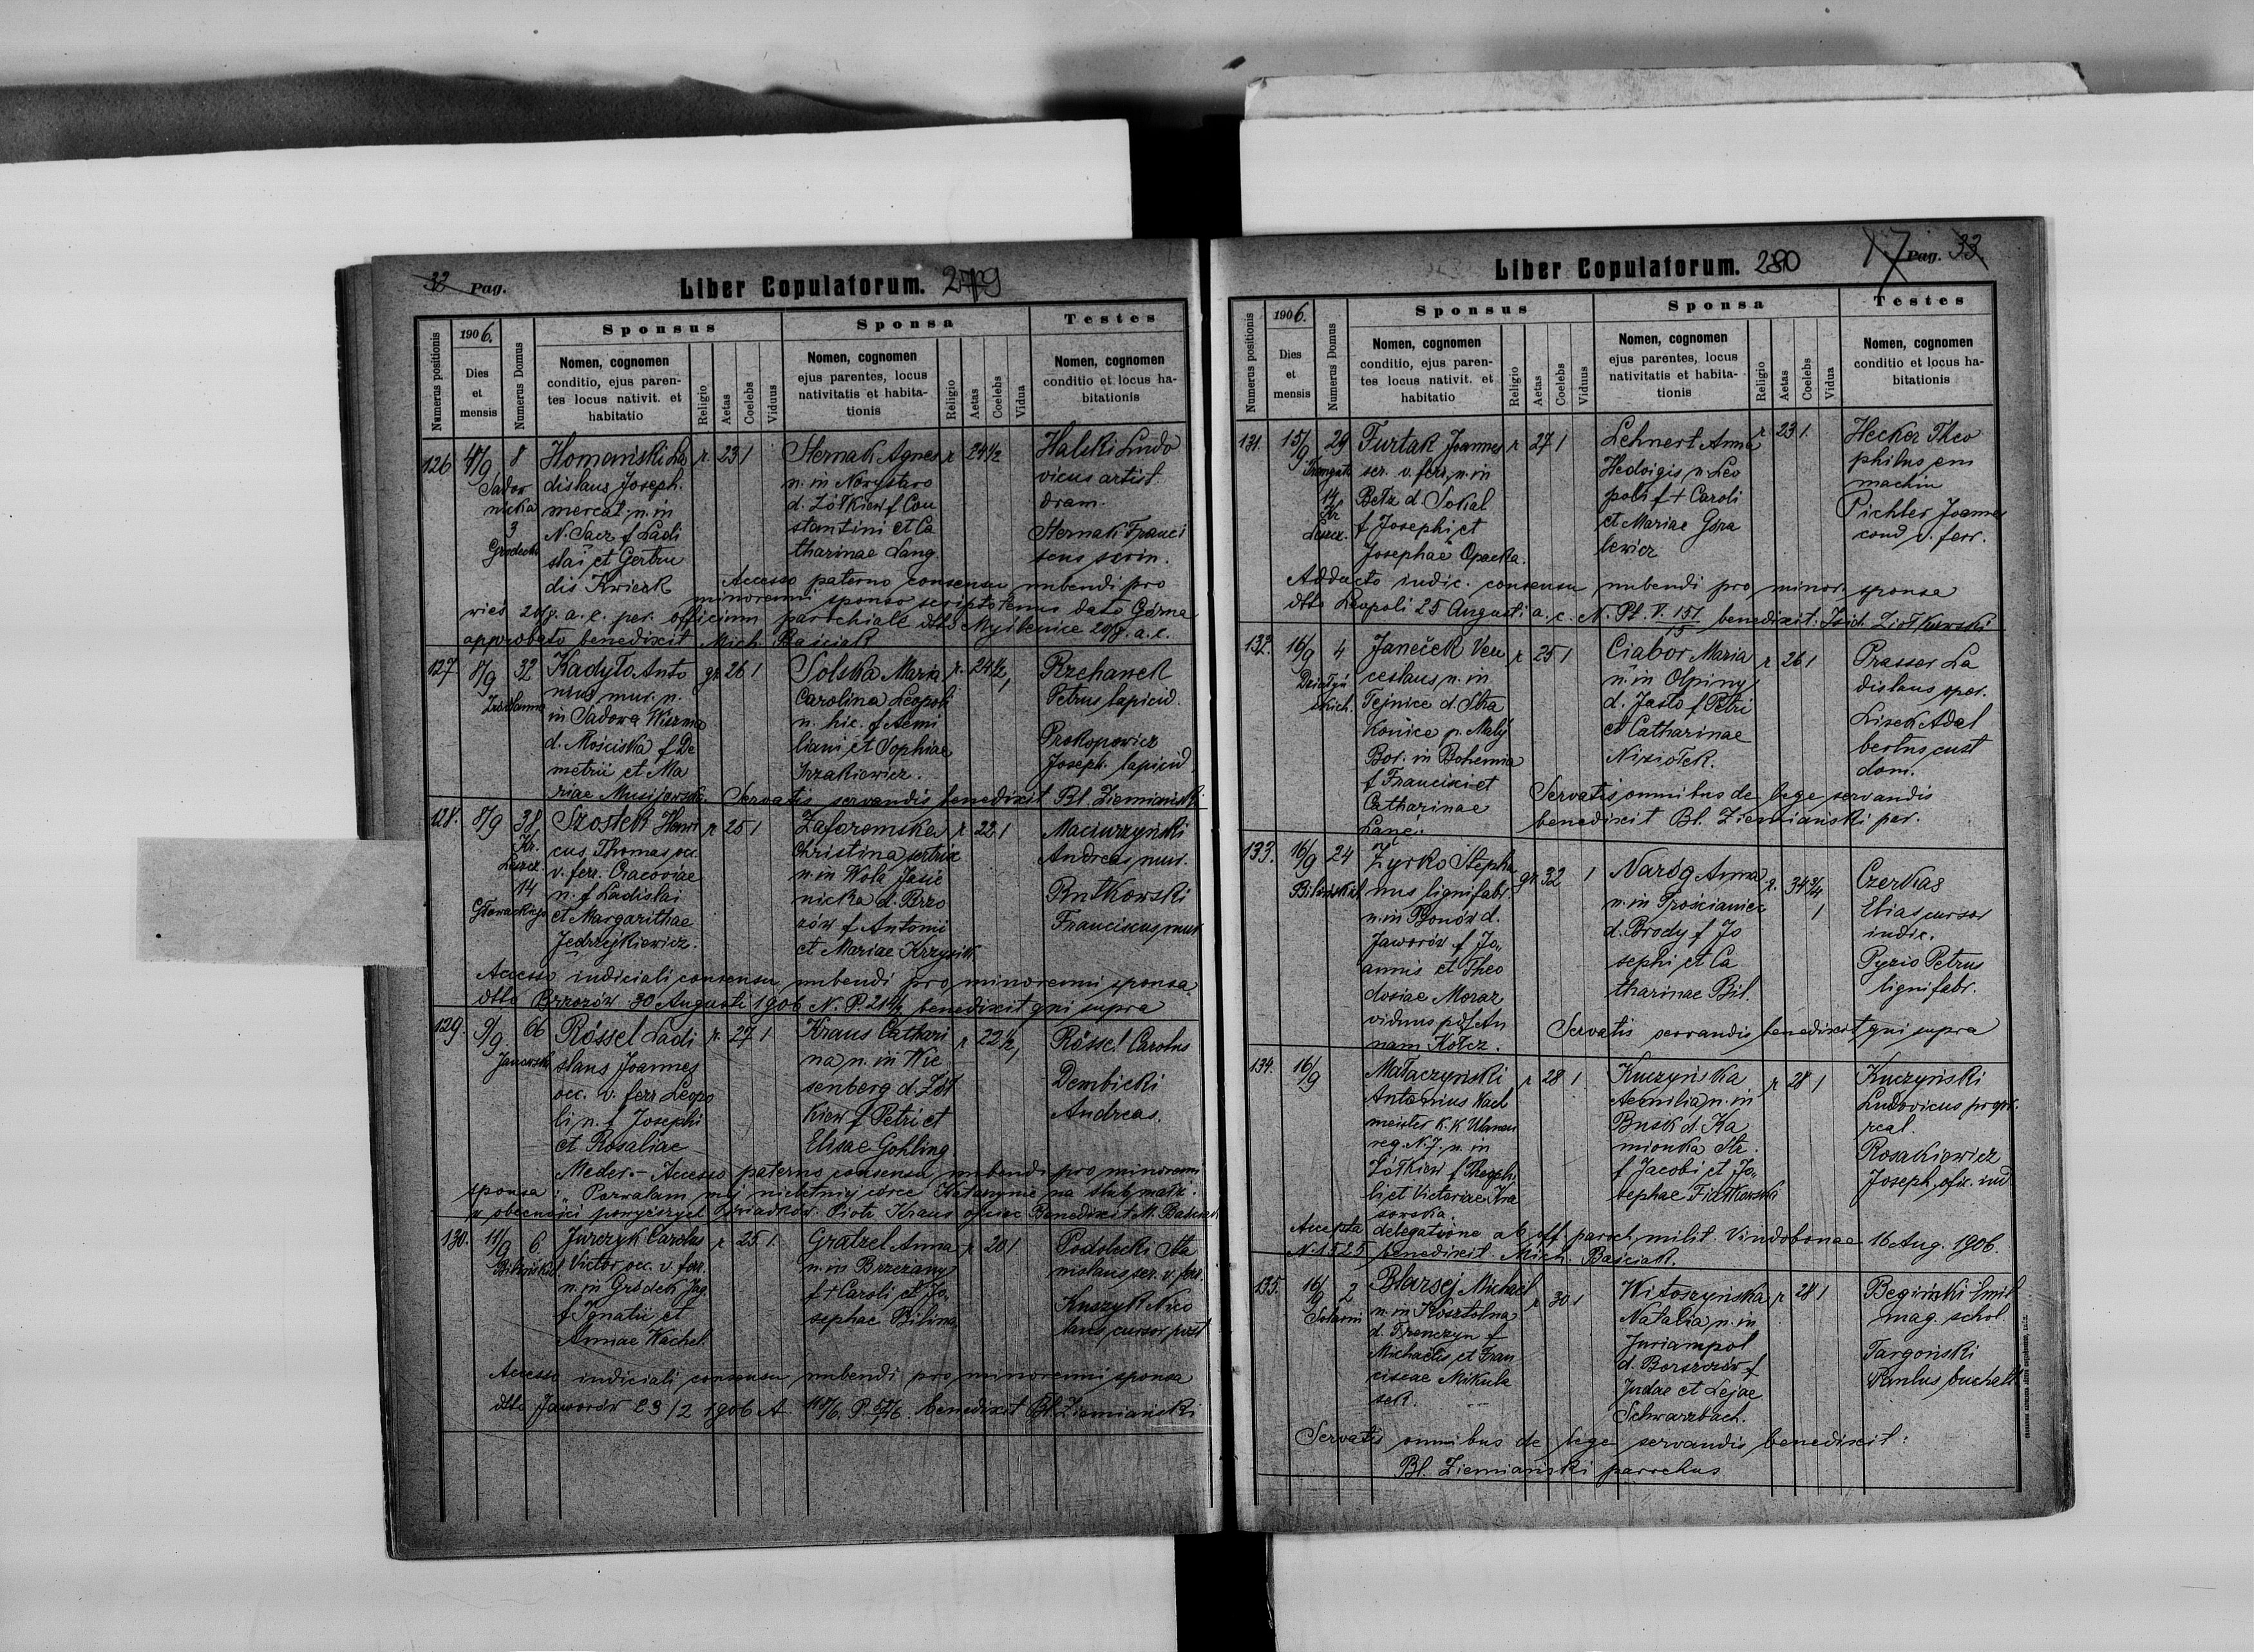 32 Pag.
Liber Copulatorum. 279
Numerus positionis
1906.
Dies
et
mensis
Numerus Domus
Sponsus
Nomen, cognomen
conditio, ejus paren-
tes locus nativit. et
habitatio
Religio
Aetas
Coelebs
Viduus
Sponsa
Nomen, cognomen
ejus parentes, locus
nativitatis et habita-
tionis
Religio
Aetas
Coelebs
Vidua
Testes
Nomen, cognomen
conditio et locus ha-
bitationis
126 4/9 8
Sadow
nicka
3
Grodecka
Homański La
dislaus Joseph.
mercat. n. in
N. Sacz f. Ladi
slai et Gertru
dis Kwiczk
r. 23 1
Sternak Agnes
n. in Nowystaw
d. Żółkiew f. Con
stantini et Ca
tharinae Lang.
r 24 1/2
Halski Ludo
vicus artist.
dram.
Sternak Franci
scus scrin.
Accesso paterno consensu nubendi pro
minorenni sponso scriptotenus dato Górna
wieś 20/8. a. c. per officium parochiale dtto Myślenice 20/8. a. c.
approbato benedixit Mich. Baściak
127 8/9 32
Kadyło Anto
nius mur. n.
in Sadowa Wisznia
d. Mościska f. De
metrii et Ma
riae Musijowska.
gr. 26 1
Solska Maria
Carolina Leopoli
n. hic. f. Aemi
liani et Sophiae
Irzakiewicz.
r. 24 1/2 1
Rzehanek
Petrus lapicid.
Prokopowicz
Joseph. lapicid.
Servatis servandis benedixit Bl. Ziemiański.
128. 8/9 38
Kr.
Leszcz.
14
Głowackiego
Szostek Henri
cus Thomas occ.
v. ferr. Cracoviae
n. f. Ladislai
et Margarithae
Jędrzejkiewicz.
r 25 1
Zafaromska
Christina sertrix
n. in Wola Jasie
nicka d. Brzo
zów f. Antonii
et Mariae Krzysik
r 22 1
Maciurzyński
Andreas mur.
Rutkowski
Franciscus mur.
Accesso iudiciali consensu nubendi pro minorenni sponsa
dtto Brzozów 30 Augusti 1906 N. P. 214/2 benedixit qui supra
129. 9/9. 66
Janowska
Rössel Ladi
slaus Joannes
occ. v. ferr Leopo
li n. f. Josephi
et Rosaliae
Meder. –
r. 27 1
Kraus Cathari
na n. in Wie
senberg d. Żół
kiew f. Petri et
Elisae Gohling
r 22 1/2 1
Rössel Carolus
Dembicki
Andreas.
Accesso paterno consensu nubendi pro minorenni
sponsa: „Pozwalam mej nieletniej córce Katarzynie na ślub małż.
w obecności powyższych świadków. Piotr Kraus ojciec Benedixit M. Baściak
130. 11/9 6
Bilińskich
Jurczyk Carolus
Victor occ. v. ferr.
n. in Gródek Jag.
f. Ignatii et
Annae Wachel.
r 25 1.
Grätzel Anna
n. in Brzeżany
f. + Caroli et Jo„
sephae Bilina
r 20 1
Podolecki Sta
nislaus ser. v. ferr.
Kuszyk Nico
laus cursor post.
Accesso iudiciali consensu nubendi pro minorenni sponsa
dtto Jaworów 23/2 1906 A. benedixit Bl. Ziemiański
Liber Copulatorum. 280
17 Pag. 33
Numerus positionis
1906.
Dies
et
mensis
Numerus Domus
Sponsus
Nomen, cognomen
conditio, ejus paren-
tes locus nativit. et
habitatio
Religio
Aetas
Coelebs
Viduus
Sponsa
Nomen, cognomen
ejus parentes, locus
nativitatis et habita-
tionis
Religio
Aetas
Coelebs
Vidua
Testes
Nomen, cognomen
conditio et locus ha-
bitationis
131. 15/9 29
14
Kr
Leszcz.
Furtak Joannes
ser. v. ferr. n. in
Bełz d. Sokal
f. Josephi et
Josephae Opacka.
r 27 1
Lehnert Anna
Hedvigis n. Leo
poli f + Caroli
et Mariae Góra
lewicz
r 23 1.
Hecker Theo
philus em
machin
Pichler Joannes
cond v. ferr.
Adducto iudic. consensu nubendi pro minor. sponsa
dtto Leopoli 25 Augusti a. c. N. Pt. V. 151/5 benedixit. Isid. Ziołkowski
132. 16/9 4
Działyń
skich.
Janeček Ven
ceslaus n. in
Tejnice d. Stra
konice p. Malý
Bor. in Bohemia
f Francisci et
Catharinae
Lanc.
r 25 1
Ciabor Maria
n. in Olpiny
d. Jasło f Petri
et Catharinae
Niziołek.
r 26 1
Prasser La
dislaus oper.
Lisek Adal
bertus cust
dom.
Servatis omnibus de lege servandis
benedixit Bl. Ziemiański par.
133. 16/9 24
Bilińskich
Żyrko Stepha
nus lignifabr.
n. in Bonów d.
Jaworów f. Jo„
annis et Theo
dosiae Moraz
viduus post An
nam Kołcz.
gr 32 1
Naróg Anna
n. in Trościaniec
d. Brody f. Jo
sephi et Ca
tharinae Bil.
r. 34 3/4
1
Czerkas
Elias cursor
indic.
Pyzio Petrus
lignifabr.
Servatis servandis benedixit qui supra
134. 16/9
Małaczyński
Antonius Wach
meister K. K Ulanen
reg. N. 7. n. in
Żółkiew f. Theophi
li et Victoriae Kra
sowska.
r 28 1
Kuczyńska
Aemilia n. in
Busk d. Ka
mionka Str.
f Jacobi et Jo„
sephae Fiałkowska
r 28 1
Kuczyński
Ludovicus propr.
real.
Rosakiewicz
Joseph. ofic. iud
Accepta delegatione ab off paroch. milit. Vindobonae 16 Aug. 1906.
N. 1525 benedixit. Mich. Baściak.
135. 16/9 2
Solarni
Blarsej Michael
n. in Kosztolna
d. Trenczyn f
Michaelis et Fran
ciscae Mikula
sek.
r 30 1
Witoszyńska
Natalia n. in
Juriampol
d. Borszczów f
Judae et Lejae
Schwarzbach.
r 28 1
Begiński Emil
mag. schol.
Targoński
Paulus buchalt
Servatis omnibus de lege servandis benedixit:
Bl. Ziemiański parochus